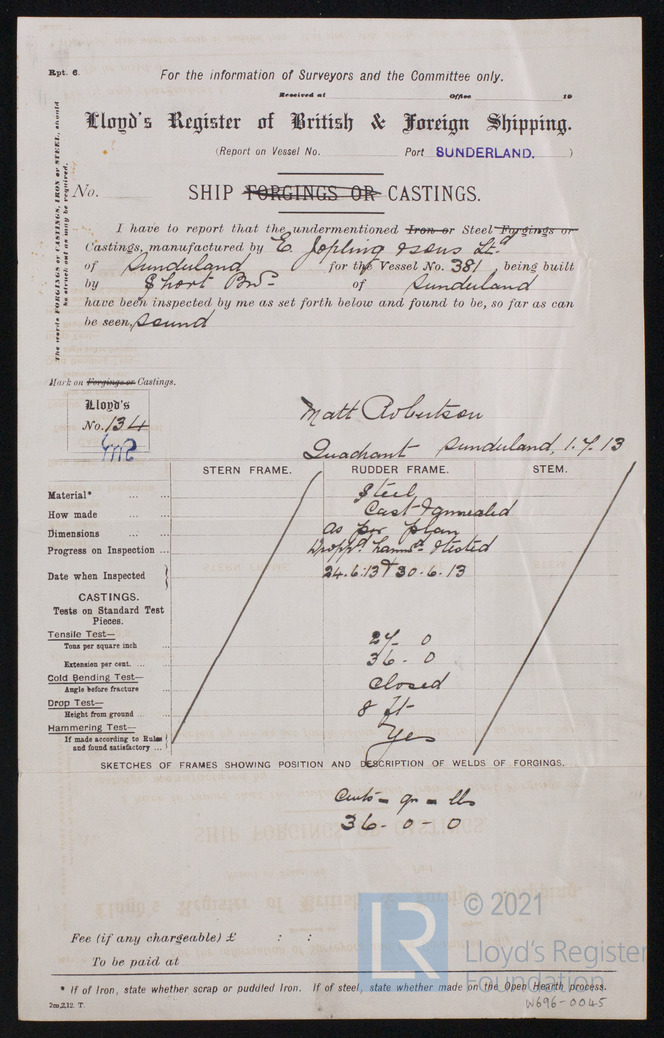 Rpt. 6.
For the information of Surveyors and the Committee only.
Received at Office 19
Lloyd's Register of British & Foreign Shipping.
(Report on Vessel No. Port SUNDERLAND. )
The words FORGINGS or CASTINGS, IRON or STEEL, should
be struck out as may be required.
No.
SHIP FORGINGS OR CASTINGS.
I have to report that the undermentioned Iron or Steel Forgings or
Castings, manufactured by E. Jopling & Sons Ltd
of Sunderland for the Vessel No. 381 being built
by Short Bros of Sunderland
have been inspected by me as set forth below and found to be, so far as can
be seen, sound
Mark on Forgings or Castings.
Lloyd's
No. 134
MR
Matt Robertson
Quadrant Sunderland, 1.7.13
STERN FRAME. RUDDER FRAME. STEM.
Material* ... ... Steel
How made ... ... Cast & annealed
Dimensions ... ... as per plan
Progress on Inspection ... Dropp'd hamm'd & tested
Date when Inspected 24.6.13 & 30.6.13
CASTINGS.
Tests on Standard Test
Pieces.
Tensile Test—
Tons per square inch 27. 0
Extension per cent. ... 36. 0
Cold Bending Test—
Angle before fracture closed
Drop Test—
Height from ground ... 8 ft
Hammering Test—
If made according to Rules
and found satisfactory ... Yes
SKETCHES OF FRAMES SHOWING POSITION AND DESCRIPTION OF WELDS OF FORGINGS.
Cwts - qr - lbs
36 - 0 - 0
Fee (if any chargeable) £ : :
To be paid at
* If of Iron, state whether scrap or puddled Iron. If of steel, state whether made on the Open Hearth process.
200,2,12. T.
W696-0045
LR
© 2021
Lloyd's Register
Foundation